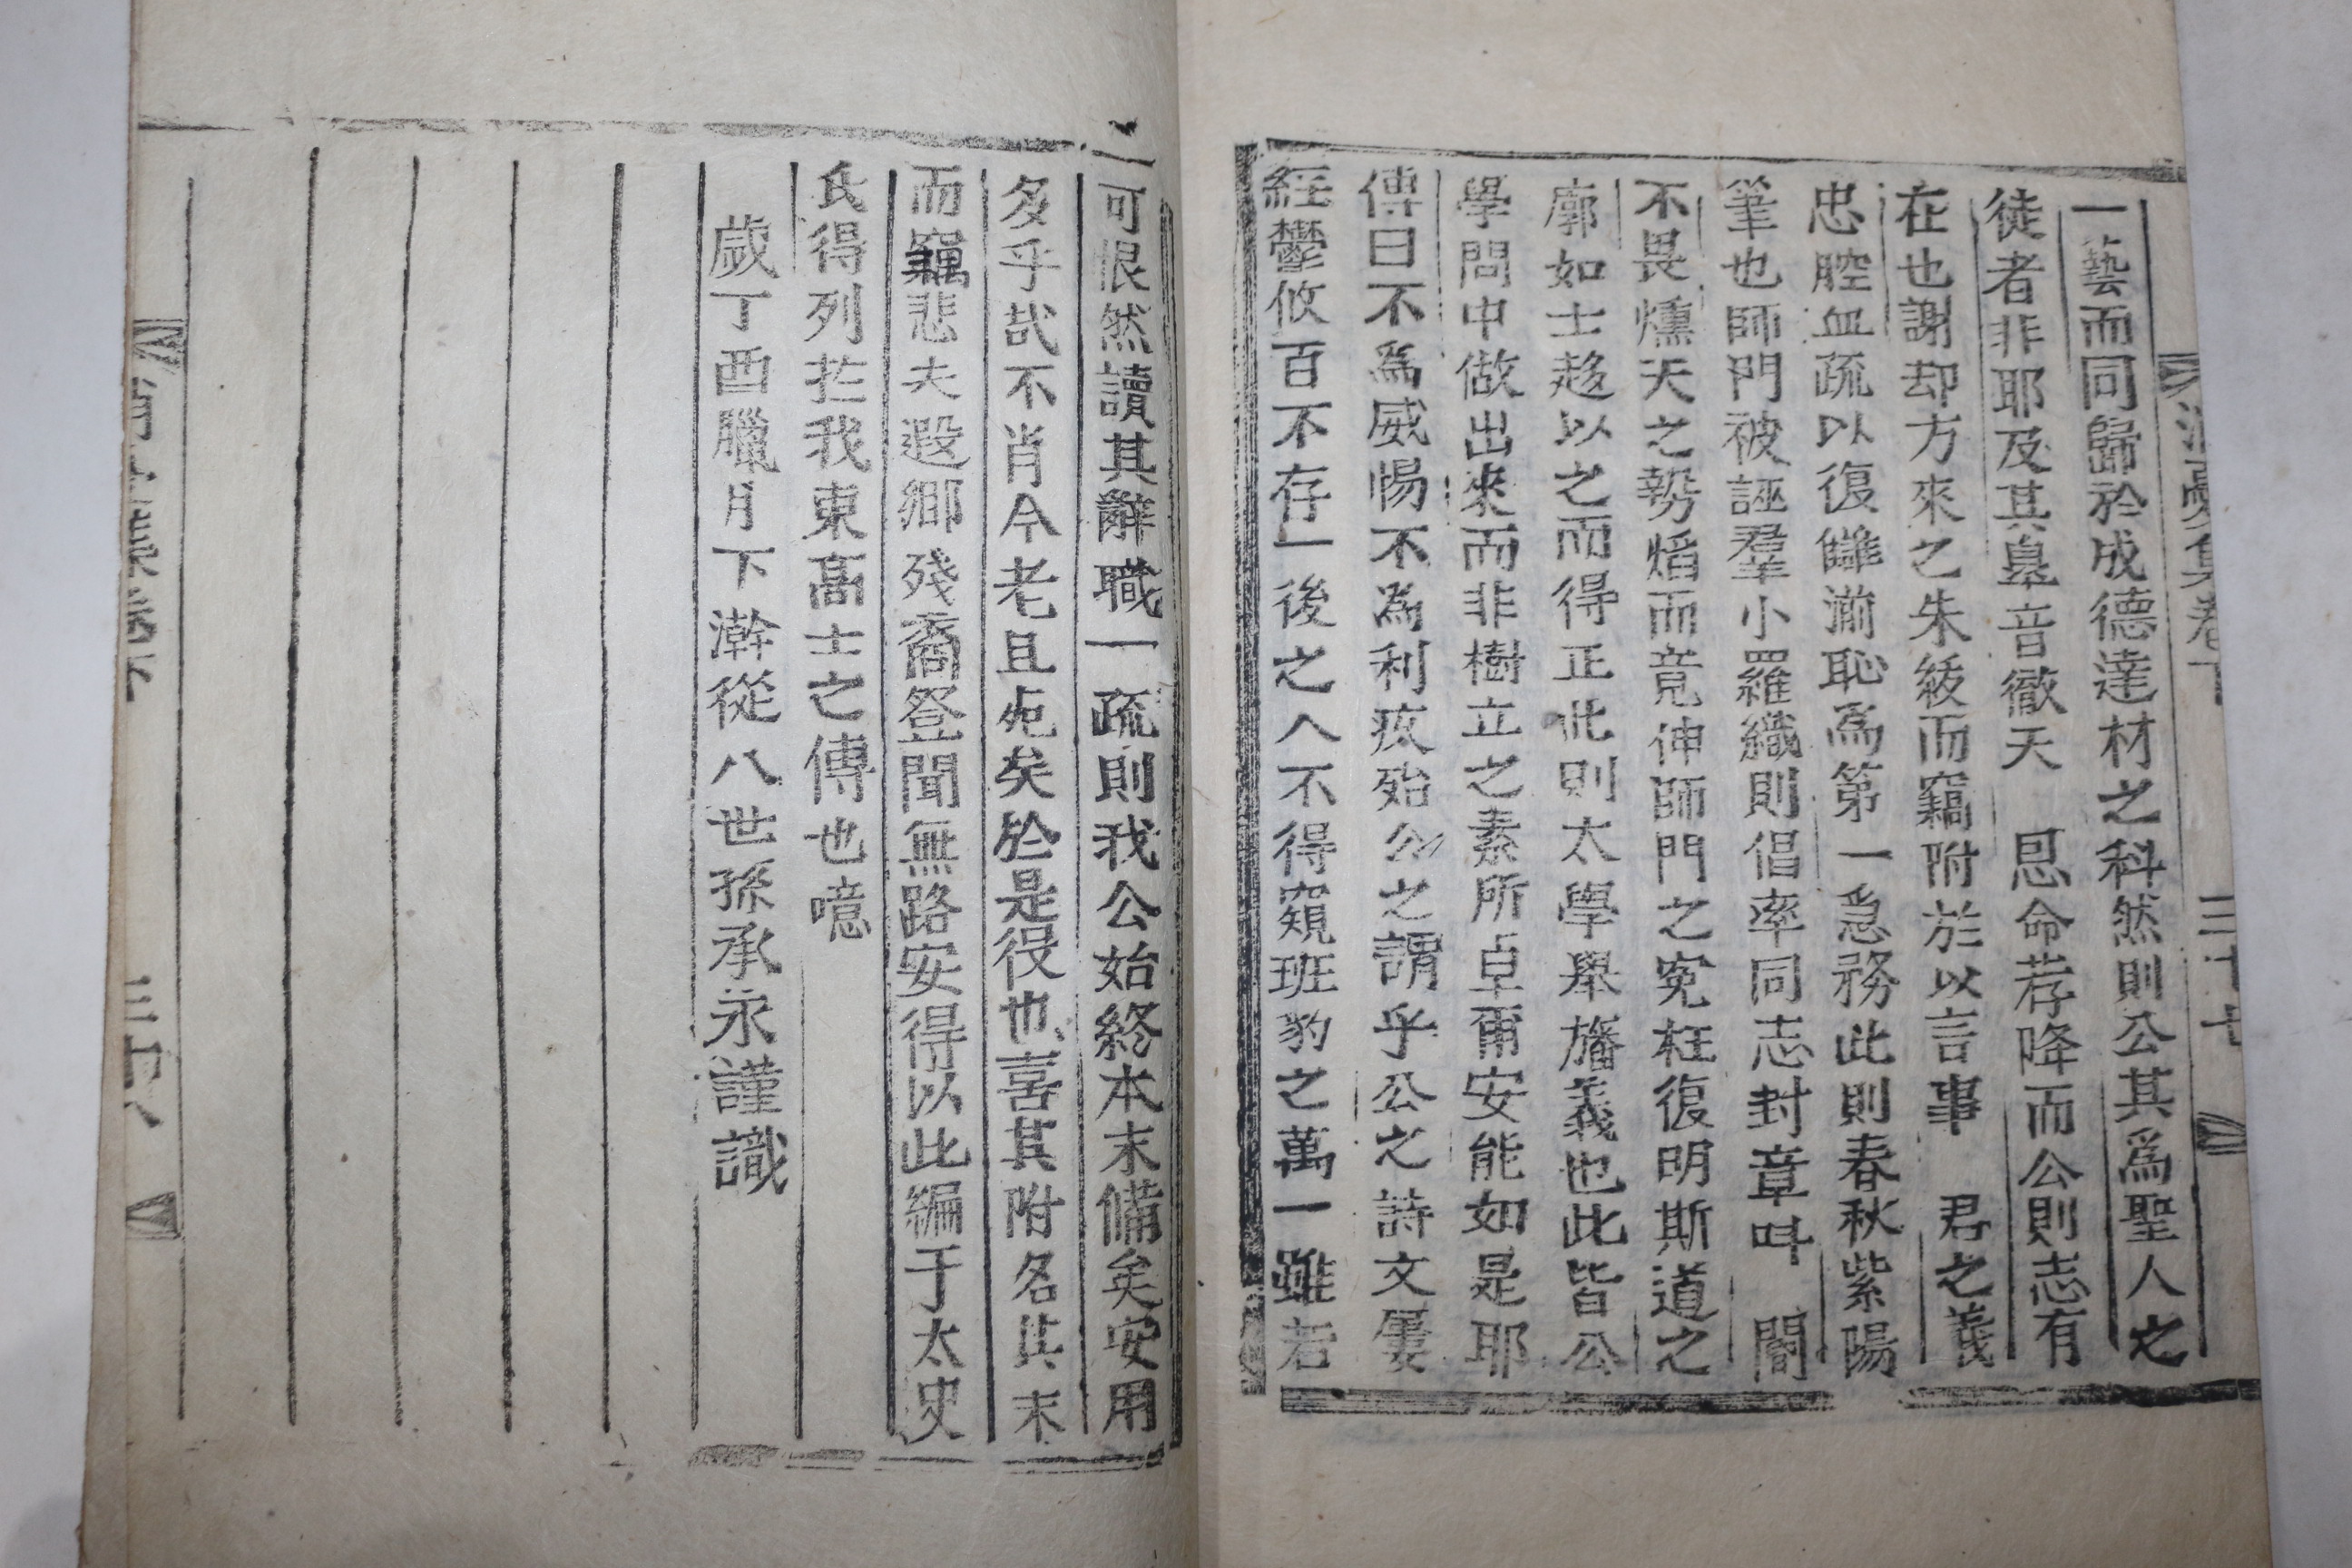 集卷下 三十七
一藝而同歸於成德達材之科然則公其爲聖人之
徒者非耶及其臯音徹天 恩命荐降而公則志有
在也謝却方來之朱紱而竊附於以言事 君之義
忠腔血疏以復讎湔恥爲第一急務此則春秋紫陽
筆也師門被誣羣小羅織則倡率同志封章叫 閤
不畏燻天之勢焰而竟伸師門之寃枉復明斯道之
廓如士趍以之而得正此則太學舉旛義也此皆公
學問中做出來而非樹立之素所卓爾安能如是耶
傳曰不爲威惕不爲利疚殆公之謂乎公之詩文屢
經鬱攸百不存一後之人不得窺班豹之萬一雖若
可恨然讀其辭職一疏則我公始終本末備矣安用
多乎哉不肖今老且死矣於是役也喜其附名其末
而竊悲夫遐鄉殘裔登聞無路安得以此編于太史
氏得列於我東高士之傳也噫
歲丁酉臘月下澣從八世孫承永謹識
三十八